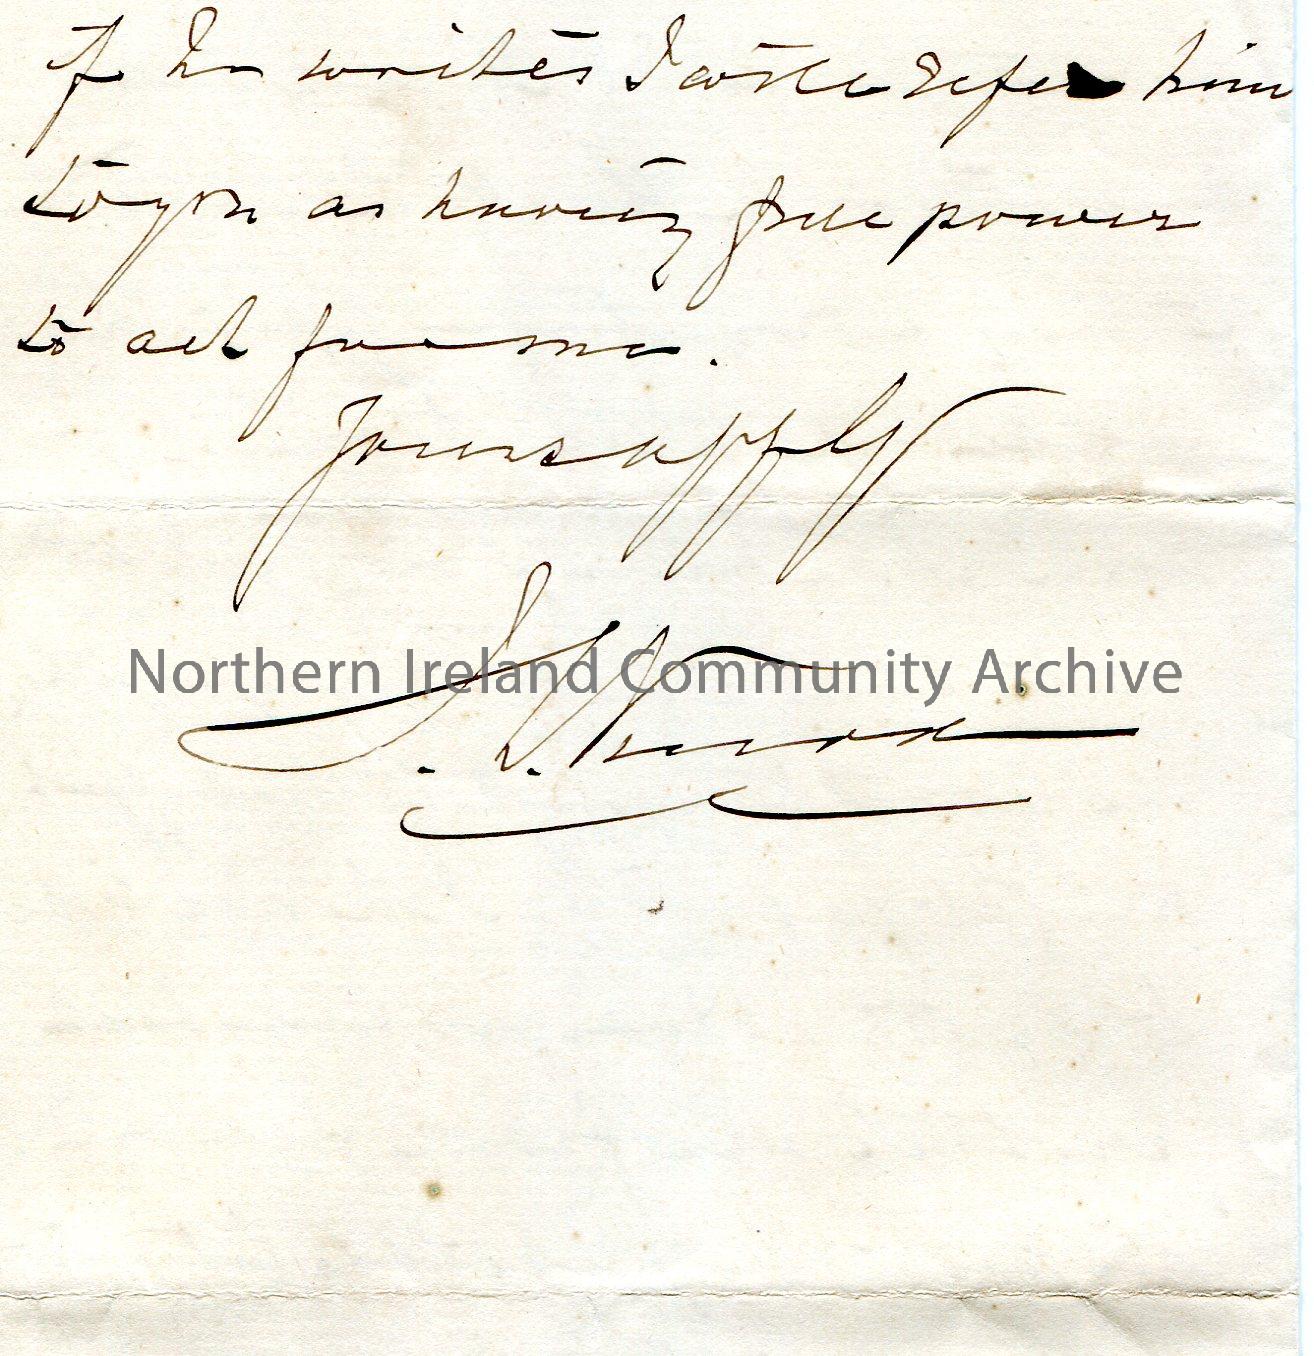 If he writes I will refer him
to you as having full power
to act for me.
Yours affly
Northern Ireland Community Archive
Knox